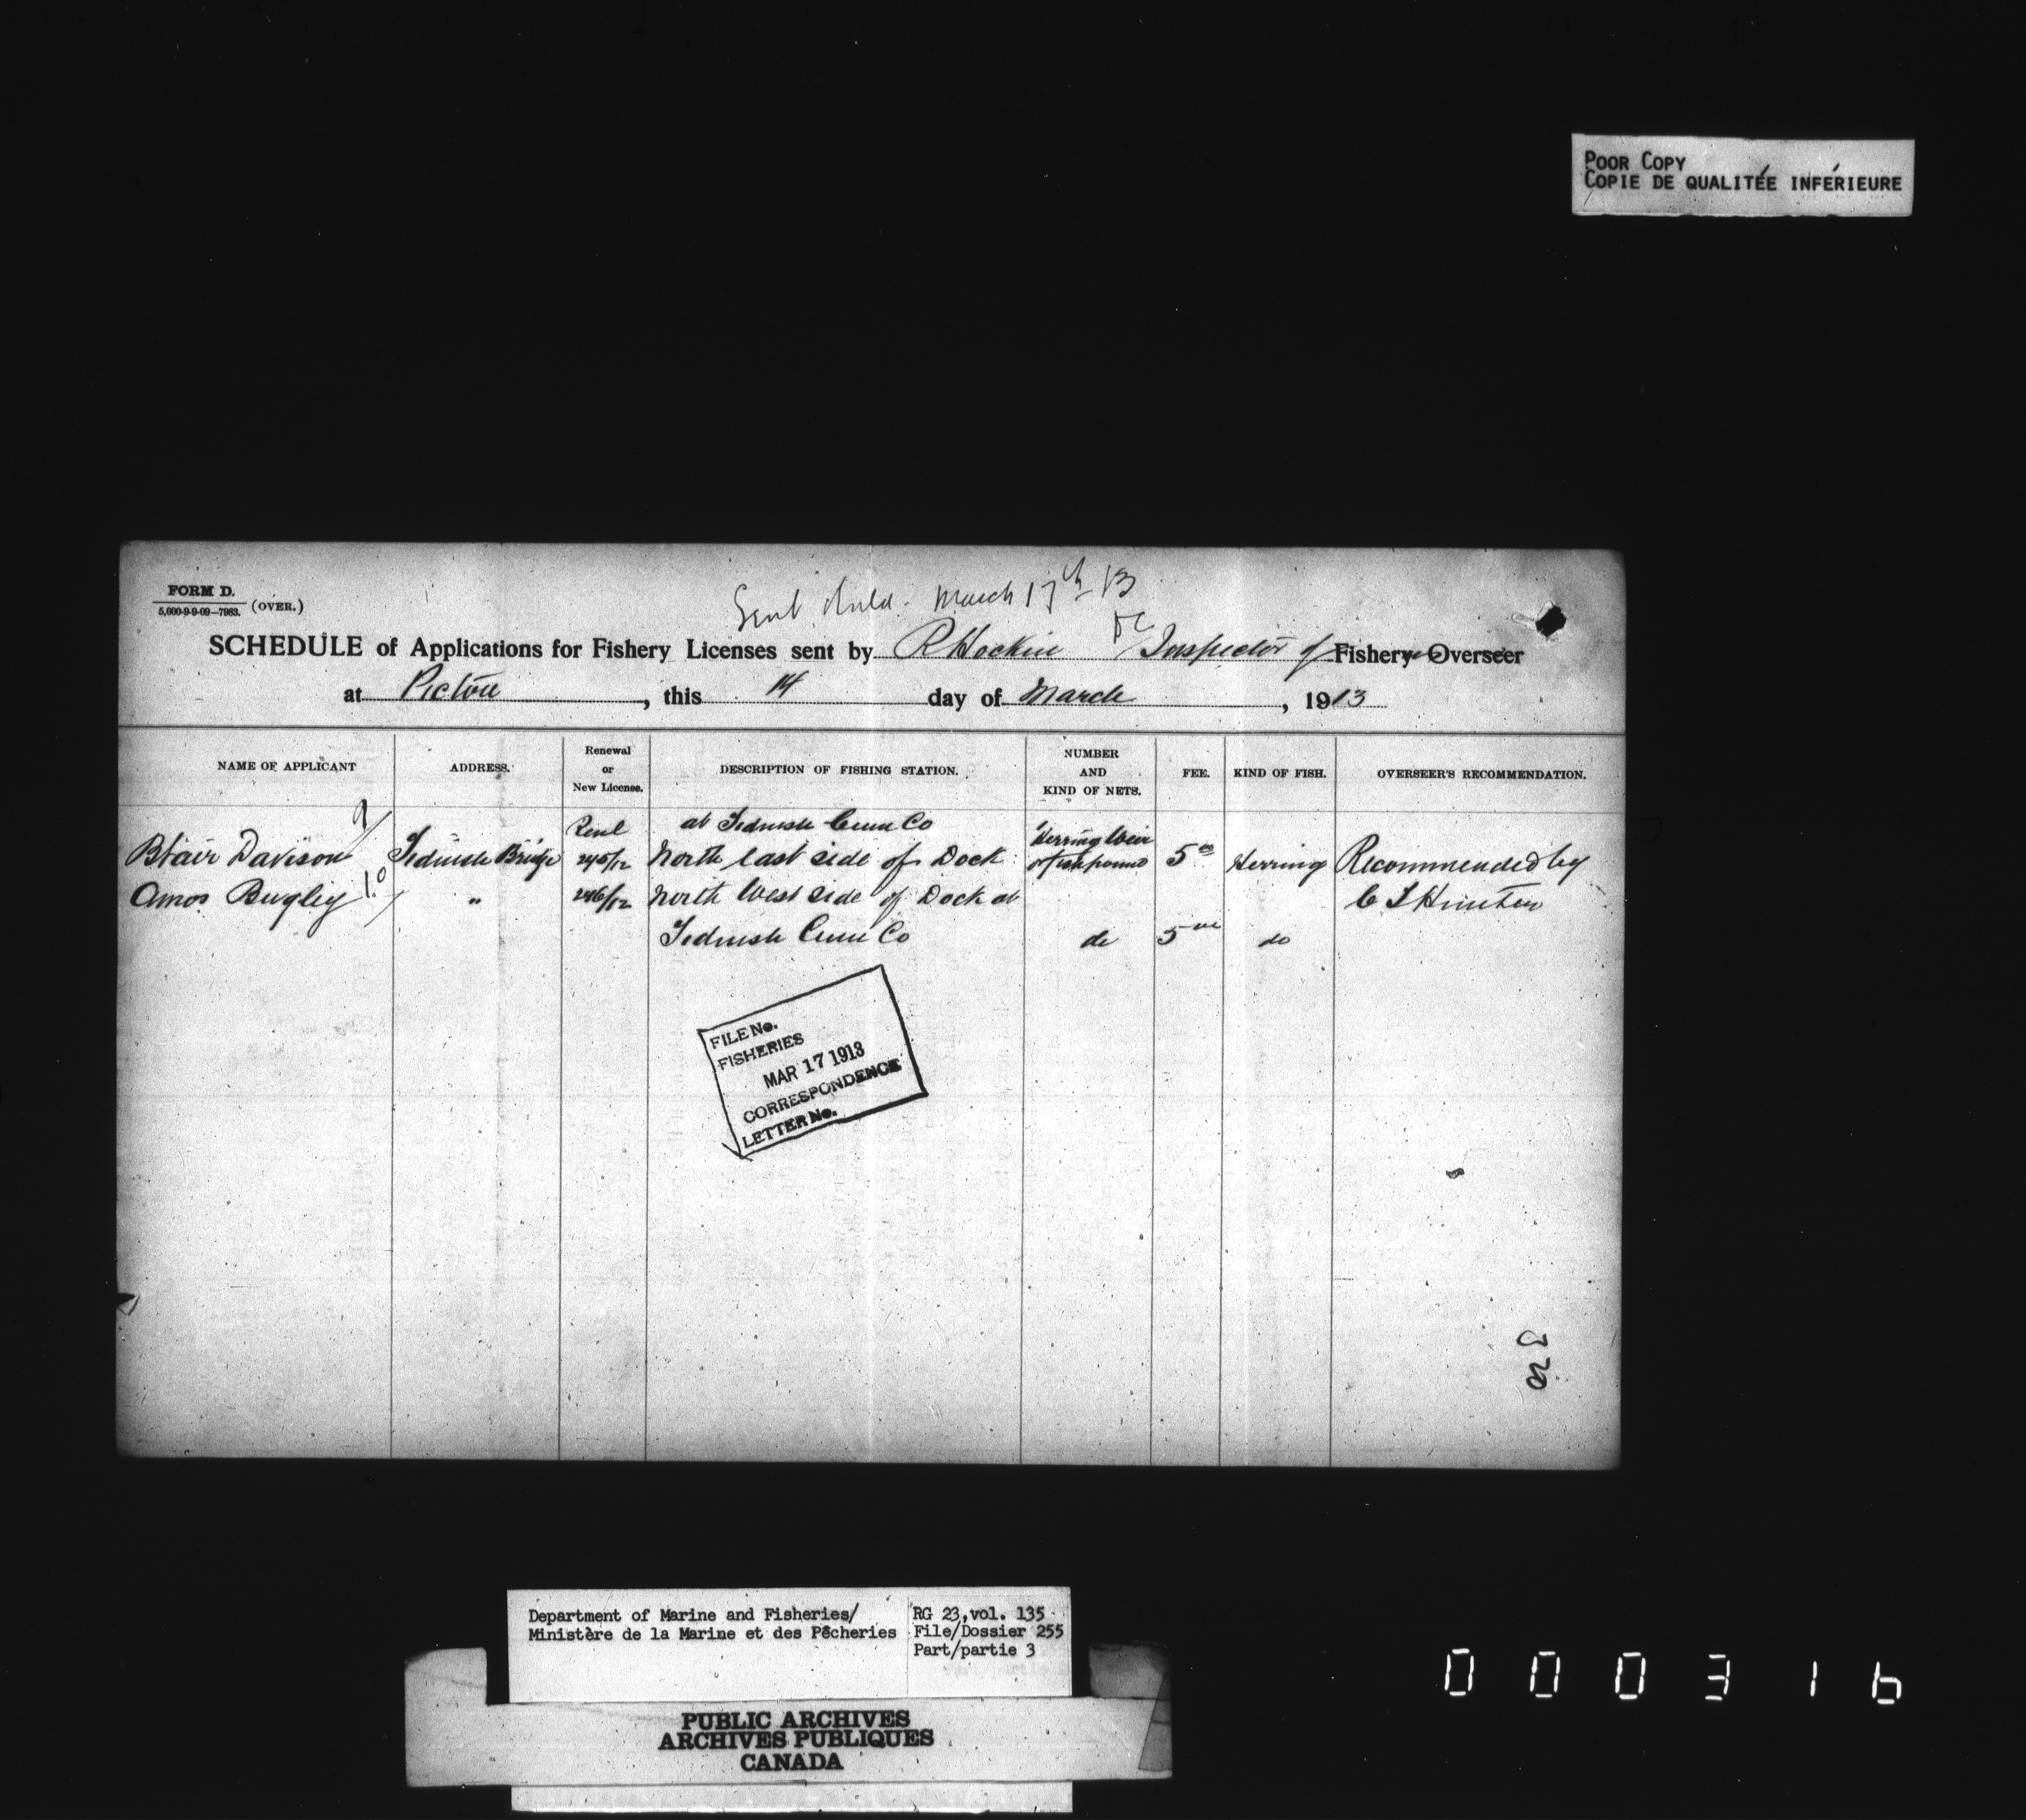 POOR COPY
COPIE DE QUALITÉE INFÉRIEURE
FORM D.
5,000-9-9-09—7983. (OVER.)
Sent March 17th 13
SCHEDULE of Applications for Fishery Licenses sent by R Hockin Inspector of Fishery Overseer
at Pictou, this 14 day of March, 1913
NAME OF APPLICANT ADDRESS. Renewal or New License. DESCRIPTION OF FISHING STATION. NUMBER AND KIND OF NETS. FEE. KIND OF FISH. OVERSEER'S RECOMMENDATION.
9
at Tidnish Cum Co
Blair Davison Tidnish Bridge 245/12 North East side of Dock Herring Weir or fishpound 5 00 Herring Recommended by
Amos Bugley 10 " 246/12 North West side of Dock at
Tidnish Cum Co do 5 00 do
FILE No.
FISHERIES
MAR 17 1913
CORRESPONDENCE
LETTER No.
Department of Marine and Fisheries/
Ministère de la Marine et des Pêcheries
RG 23,vol. 135
File/Dossier 255
Part/partie 3
PUBLIC ARCHIVES
ARCHIVES PUBLIQUES
CANADA
000316